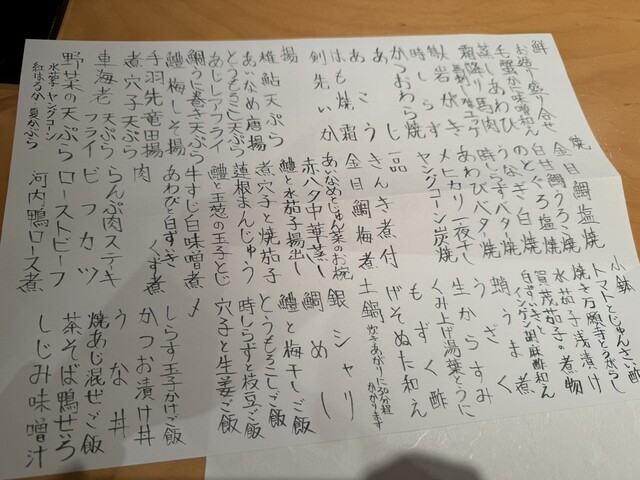 鮮
お造り盛り合せ
毛蟹かに味噌和え
蒸しあわび
霜降り馬肉
岩がき
時しらず
かつおわら焼
あじ
あこう
はも焼霜
剣先いか
揚
稚鮎天ぷら
あいなめ唐揚
とうもろこし天ぷら
あじレアフライ
鯛うに巻き天ぷら
鱧梅しそ揚
手羽先竜田揚
煮穴子天ぷら
車海老 天ぷら フライ
野菜の天ぷら
水茄子 ヤングコーン
紅はるか 夏かぶら
焼
金目鯛塩焼
白甘鯛うろこ焼
のどぐろ塩焼
うなぎ白焼
時しらずバター焼
あわびバター焼
メヒカリ一夜干し
ヤングコーン炭焼
一品
きんき煮付
金目鯛梅煮
あいなめとじゅん菜のお椀
赤ハタ中華蒸し
鱧と水茄子揚出し
煮穴子と焼茄子
蓮根まんじゅう
鱧と玉葱の玉子とじ
牛すじ白味噌煮
あわびと白ずき くず煮
肉
らんぷ肉ステキ
ビフカツ
ローストビーフ
河内鴨ロース煮
小鉢
トマトとじゅんさい酢
焼き万願寺とうがらし
水茄子浅漬け
賀茂茄子の煮物
白ずいきとインゲン胡麻酢和え
蛸うま煮
うざく
生からすみ
くみ上げ湯葉とうに
もずく酢
げそぬた和え
土鍋
炊きあがりに30分程かかります
銀シャリ
鯛めし
鱧と梅干しご飯
とうもろこしご飯
時しらずと枝豆ご飯
穴子と生姜ご飯
〆
しらす玉子かけご飯
かつお漬け丼
うな丼
焼あじ混ぜご飯
茶そば鴨せいろ
しじみ味噌汁